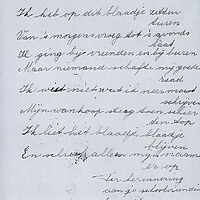 Ik het op dit blaadje zetten
turen
Van 's morgens vroeg tot 's avonds
laat
Ik ging bij vrienden en bij buren
Maar niemand schafte mij goede
raad
Ik weet niet wat ik neer moest
schrijven
Mijn wanhoop steeg toen
ten top
Ik liet het blaadje blaadje
blijven
En schreef alleen mijn naam
er op
Ter herinnering
aan je schoolvriendin